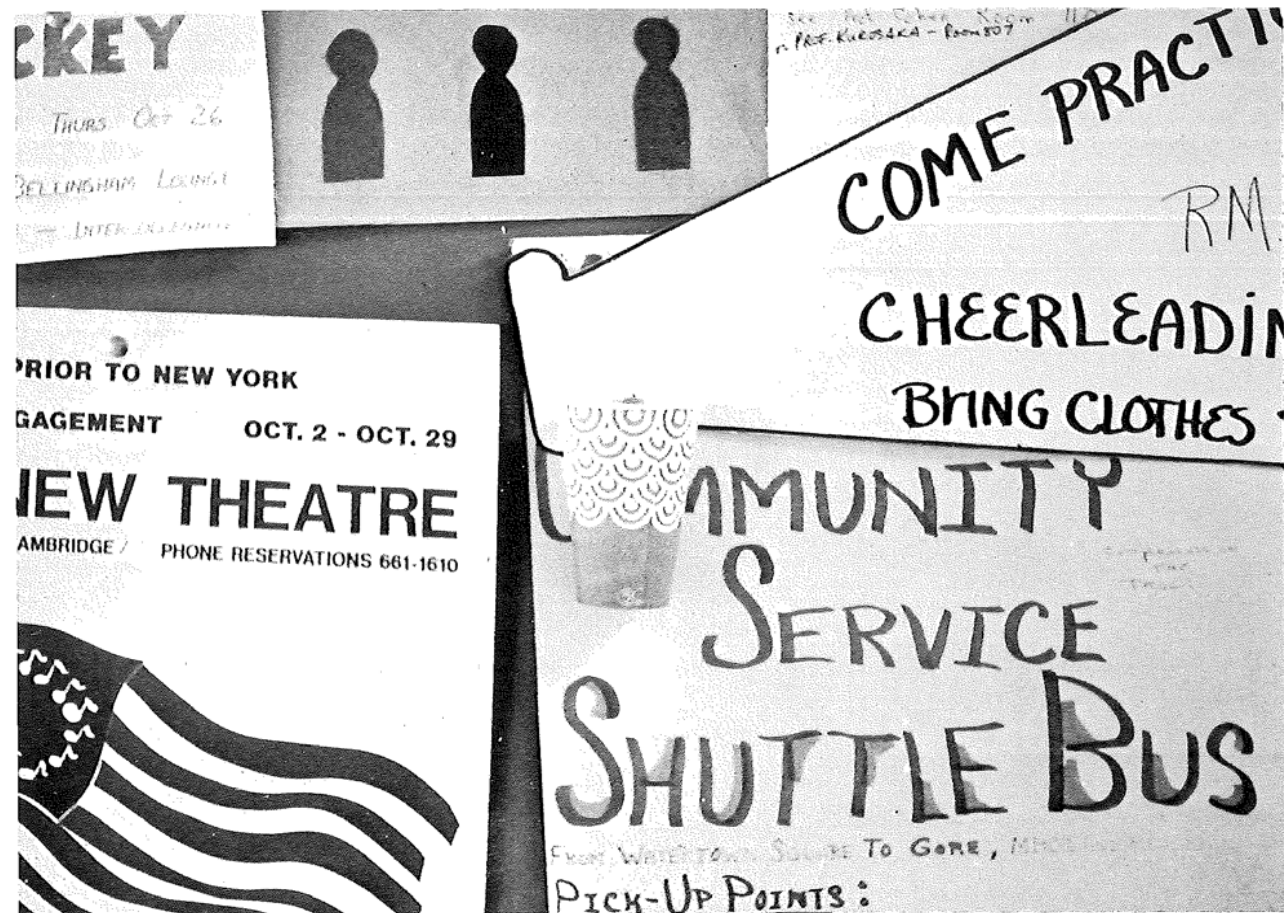 CKEY
THURS OCT 26
BELLINGHAM LOUNGE
PROF. KUROSAKA - ROOM 807
COME PRACTI
RM
CHEERLEADIN
BrING CLOTHES
PRIOR TO NEW YORK
GAGEMENT OCT. 2 - OCT. 29
NEW THEATRE
AMBRIDGE / PHONE RESERVATIONS 661-1610
MMUNITY
SERVICE
SHUTTLE BUS
FROM WATERTOWN SQUARE TO GORE,
PICK-UP POINTS: